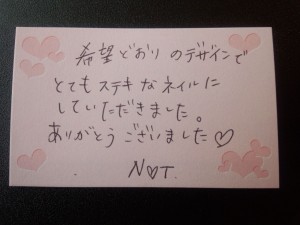 希望どおりのデザインで
とてもステキなネイルに
していただきました。
ありがとうございました♡
N♡T.